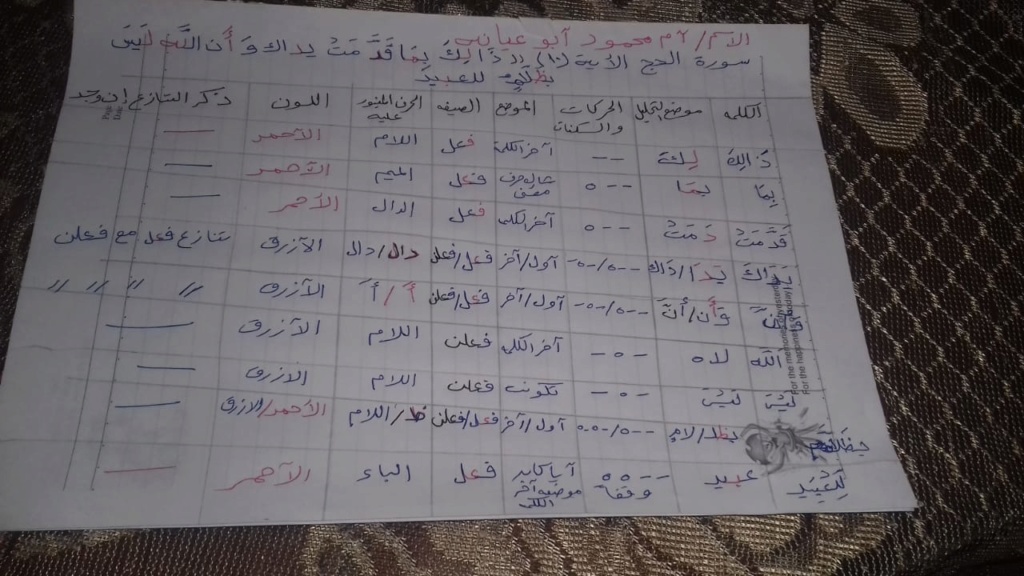 الاسم/ ام محمود ابو عباس
سورة الحج الآية (١٠) ذَالِكَ بِمَا قَدَّمَتْ يداك وَ أَن اللَّه لَيْسَ
بظلام للعبيد
الكلمه موضع التحليل الحركات والسكنات الموضع الصيغه الحرف المنبور عليه اللون ذكر التنازع إن وجد
ذَالِكَ لِكَ -- آخر الكلمه فعل اللام الأحمر —
بِمَا بِمَا --٥ فعل الميم الأحمر —
قَدَّمَتْ دَمَتْ --٥ آخر الكلمه فعل الدال الأحمر
يَدَاكَ يَدَا/دَاكَ --٥/-٥- أول/آخر فعل/فعلن دال/دال الأزرق تنازع فعل مع فعلن
وَأَنَّ وَأَن/أَنَّ --٥/-٥- أول/آخر فعل/فعلن أَ/أَ الأزرق 〃 〃 〃 〃
الله لاه -٥- آخر الكلمه فعلن اللام الأزرق —
لَيْسَ لَيْسَ -٥- تكونت فعلن اللام الازرق —
بظلا/لامٍ --٥/-٥-٥ أول/آخر فعل/فعلن ظا/اللام الأحمر/الازرق —
لِلعَبِيدِ عبيد --٥٥ وقفة آخر الكلمه فعل الباء الأحمر —
For the